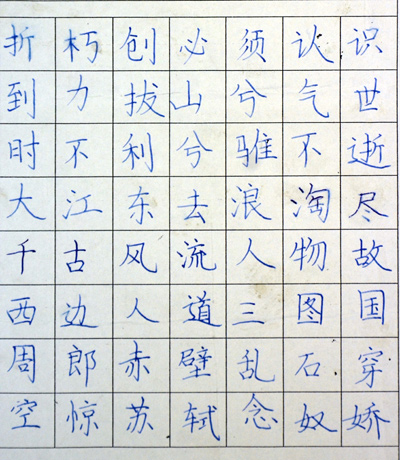 折朽创必须认识
到力拔山兮气世
时不利兮骓不逝
大江东去浪淘尽
千古风流人物故
西边人道三图国
周郎赤壁乱石穿
空惊苏轼念奴娇